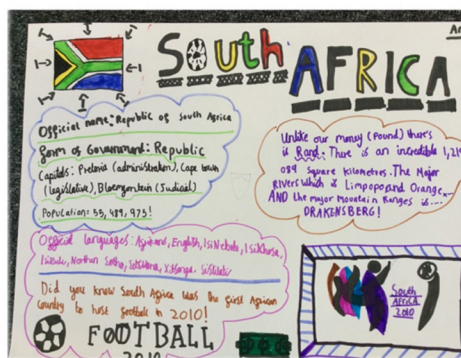 SOUTH
AFRICA
Official name: Republic of South Africa
form of Government: Republic
Capitals: Pretoria (administration), Cape town
(legislative), Bloemfontein (Judicial)
Population: 55, 489, 973!
Unlike our money (Pound) there's
is Rand. There is an incredible 1,21
089 Square Kilometres. The Major
Rivers which is Limpopo and Orange...
AND the major Mountain Ranges is....
DRAKENSBERG!
Official languages: English,
Northern Sotho,
Did you know South Africa was the first African
Country to host football in 2010!
FOOTBALL
2010
South
Africa
2010